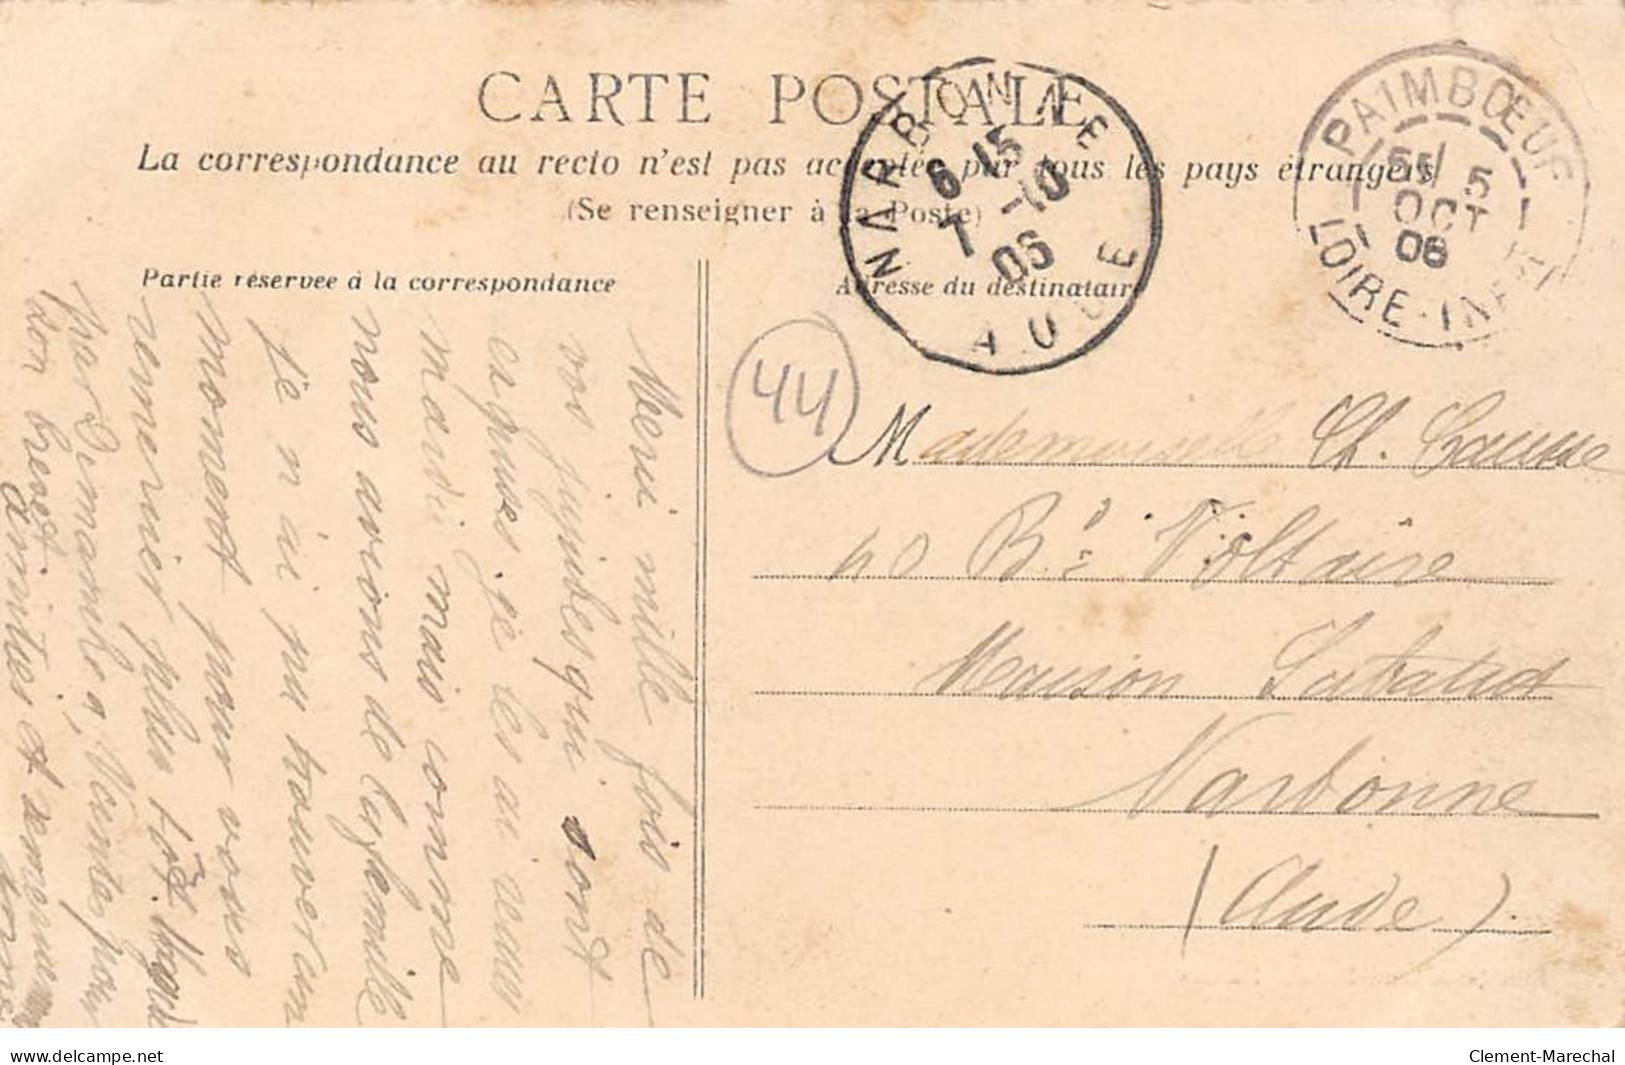 CARTE POSTALE
La correspondance au recto n'est pas acceptée par tous les pays étrangers
(Se renseigner à la Poste)
Partie réservée à la correspondance
Adresse du destinataire
NARBONNE
6 15
7 -10
06
AUDE
PAIMBŒUF
5 5
OCT
06
LOIRE-INF
44
Mademoiselle Ch.
40 Bd Voltaire
Maison
Narbonne
(Aude)
Merci mille fois de
vos qui sont
exquises je les ai reçues
mardi mais comme
nous avions de la famille
je n'ai pu trouver un
moment pour vous
remercier plus tôt.
par Demain à Nantes pour
son brevet
Amitiés et
www.delcampe.net
Clement-Marechal